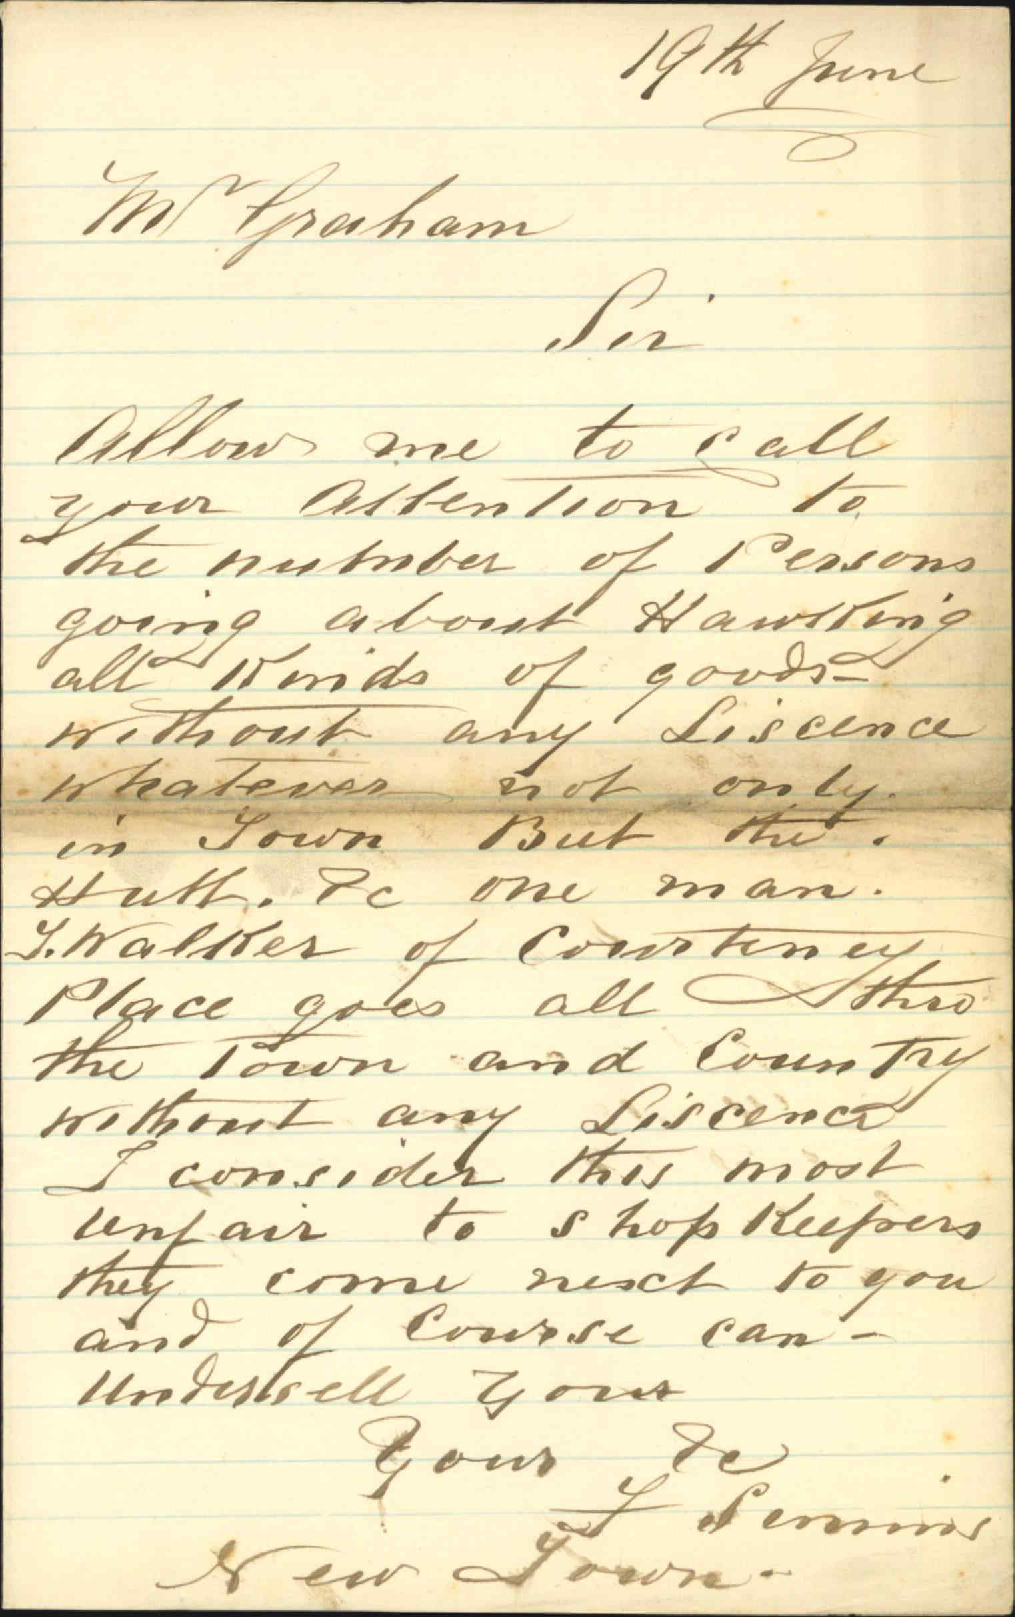 19th June
Mr Graham
Sir
Allow me to call
your Attention to
the number of Persons
going about Hawking
all Kinds of goods -
without any Liscence
whatever not only
in Town But the
Hutt. &c one man.
T. Walker of Courteney
Place goes all thro
the Town and Country
without any Liscence
I consider this most
unfair to shop Keepers
they come next to you
and of Course can -
Undersell your
Yours &c
New Town -